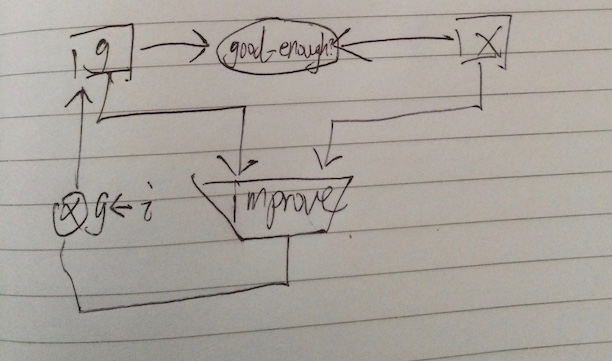 g good-enough? x
improve
g← i